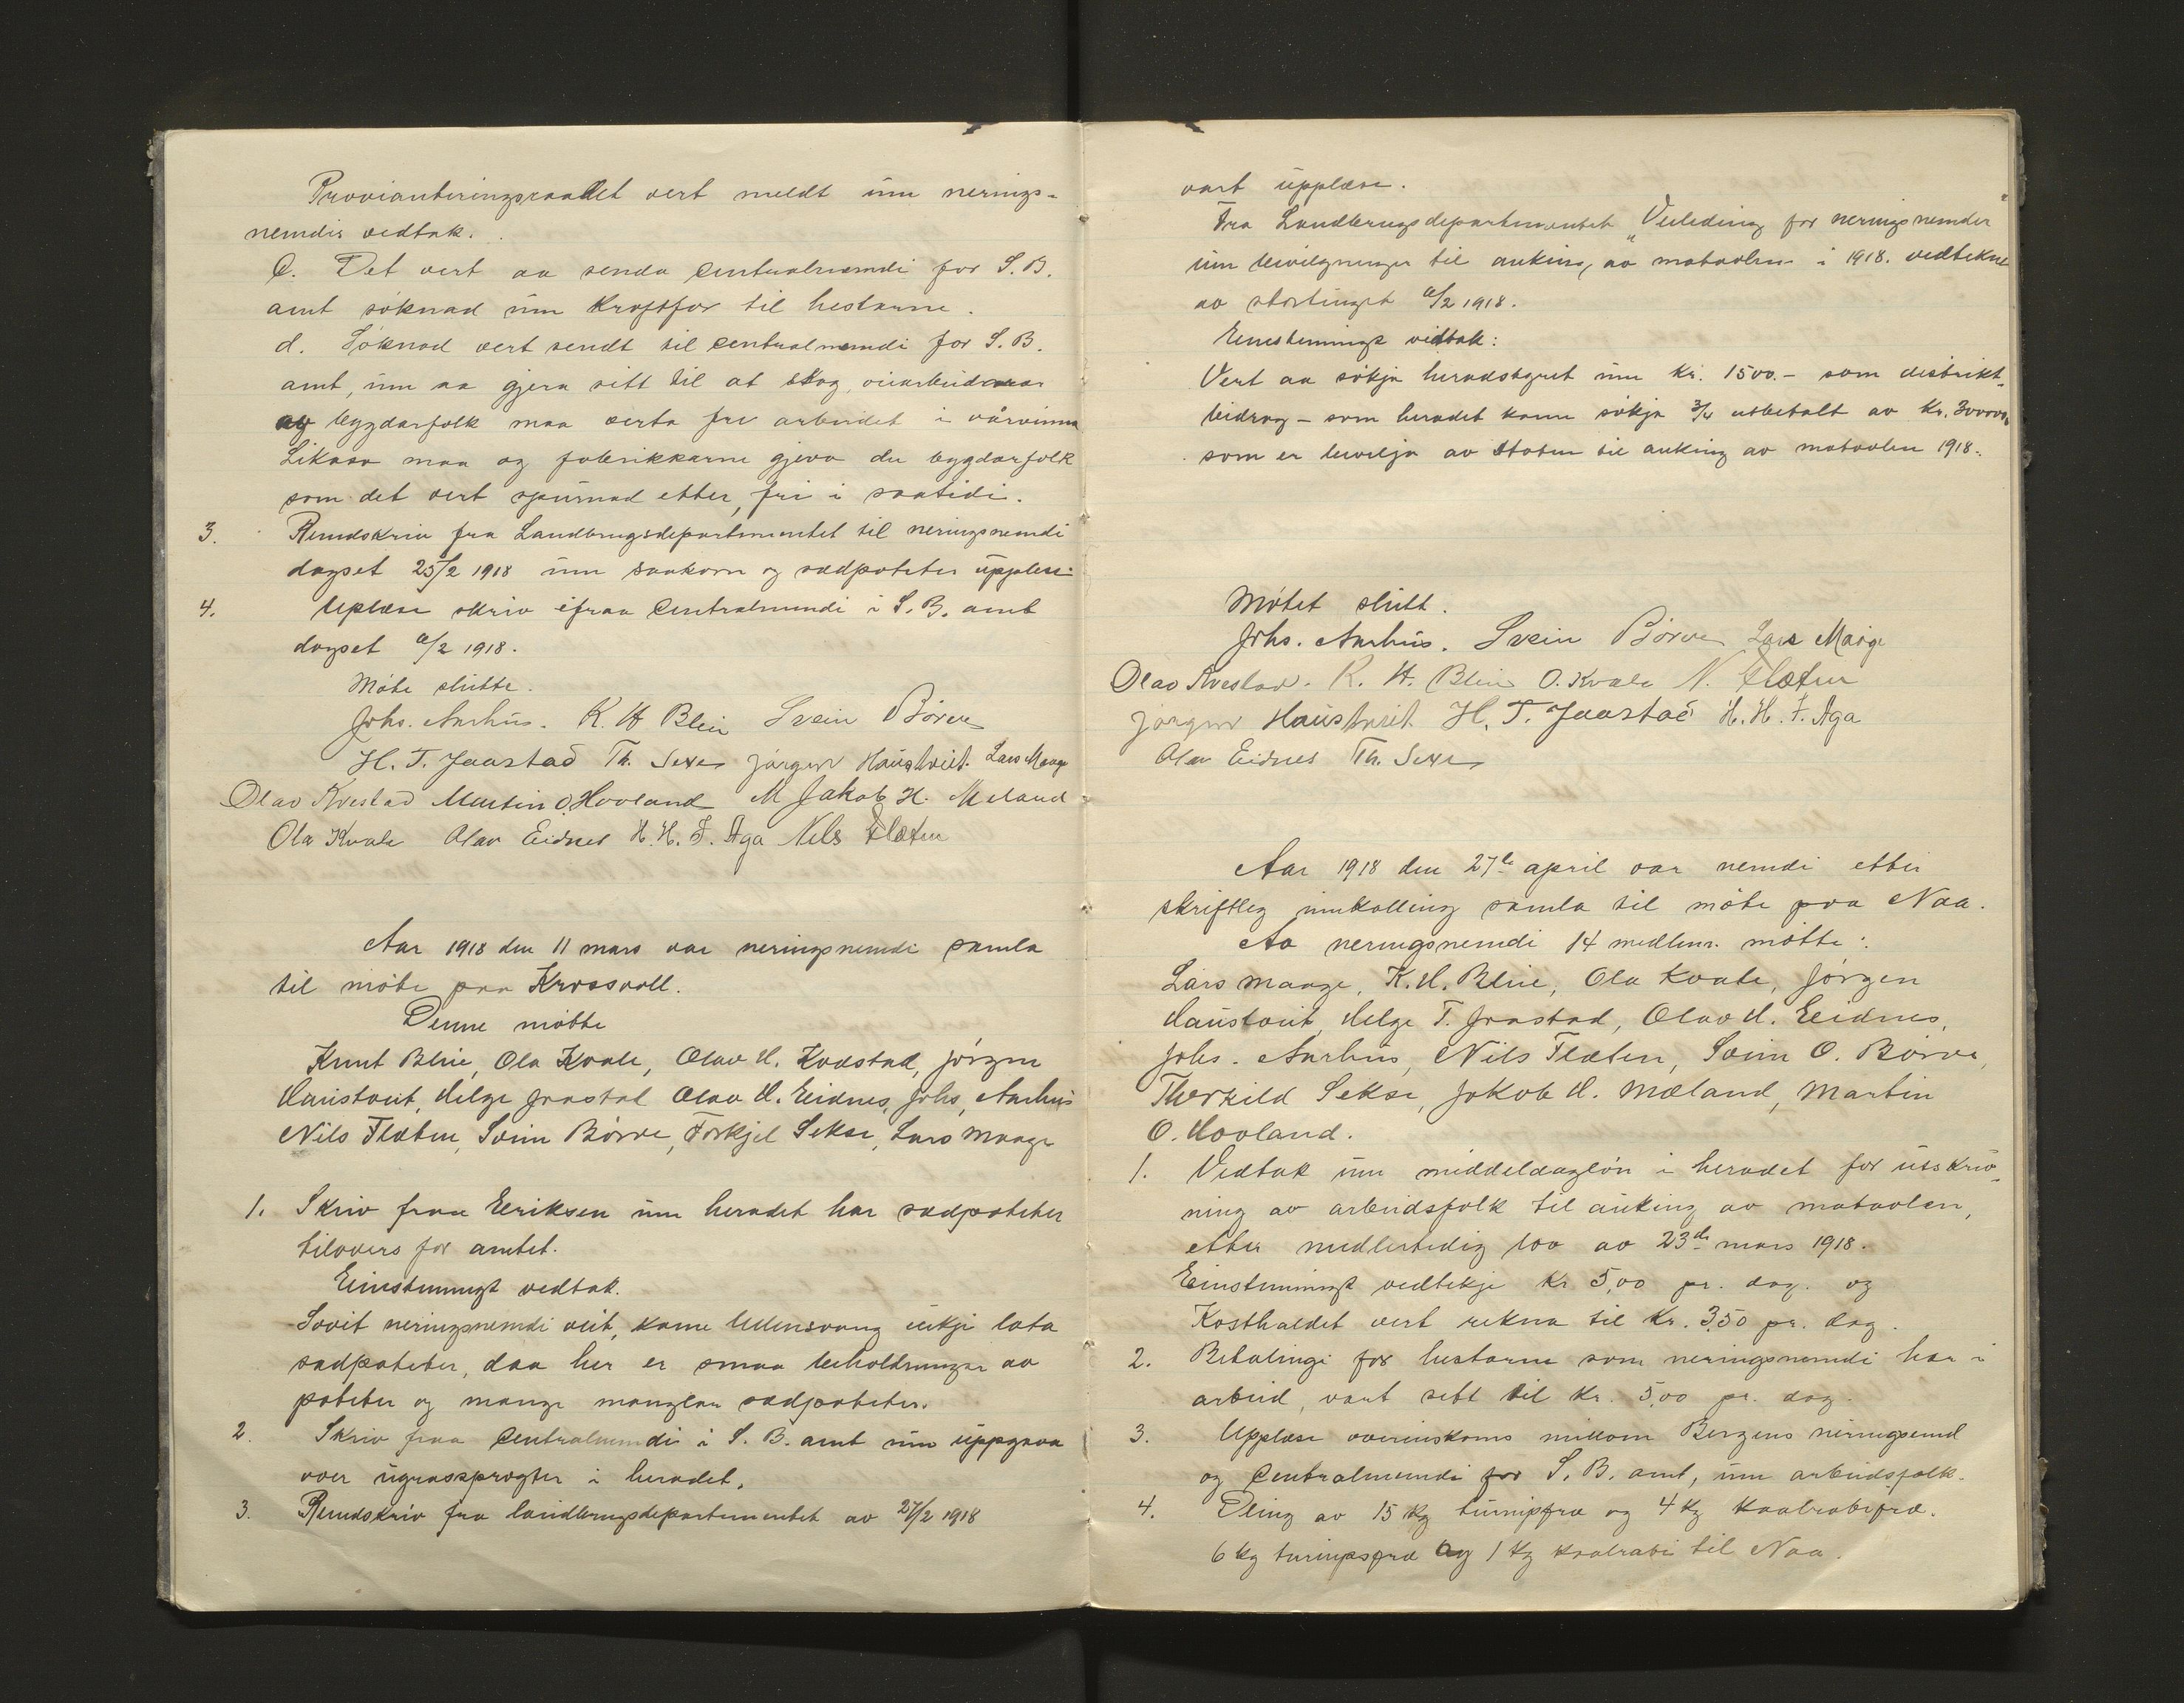 Provianteringsraadet vert meldt um nerings-
nemdis vedtak.
C. Det vert aa senda Centralnemdi for S.B.
amt söknad um Kraftfor til hestarne.
d. Söknad vert sendt til Centralnemdi for S.B.
amt, um aa gjera sitt til at skog,
av bygdarfolk maa verta fri arbeidet i vårvinna
Likaso maa og fabrikkarne gjeva dei bygdarfolk
som det vert spurnad etter, fri i saatidi.
3. Rundskriv fra Landbrugsdepartementet til neringsnemdi
dagset 25/2 1918 um saakorn og sædpoteter upplese
4. Uplese skriv ifraa Centralnemdi i S.B. amt
dagset /2 1918.
Möte slutte.
Johs. Aarhus. K. H Bleie Svein Börve
H. T. Jaastad Th. Sexe Jörgen Haustveit. Lars Maage
Olav Kvestad Martin O. Hovland M Jakob H. Meland
Ola Kvale Olav Eidnes H. H. F. Aga Nils Flæten
Aar 1918 den 11 mars var neringsnemdi samla
til möte paa Krossvoll.
Denne mötte
Knut Bleie, Ola Kvale, Olav H. Kvæstad, Jörgen
Haustveit, Helge Jaastad Olav H. Eidnes, Johs, Aarhus
Nils Flæten, Svein Börve, Torkjel Sekse, Lars Maage
1. Skriv fraa Eeriksen um heradet har sædpoteter
tilovers for amtet.
Einstemmigt vedtak.
Sovit neringsnemdi veit, kann Ullensvang ikkje lata
sædpoteter, daa her er smaa beholdningar av
poteter og mange manglar sædpoteter.
2. Skriv fraa Centralnemdi i S. B. amt um uppgava
over ugrassprøgter i heradet.
3. Rundskriv fra landbrugsdepartementet av 27/2 1918
vart upplese.
Fra Landbrugsdepartementet „Veileding for neringsnemder"
um bevilgninger til auking av matavlen i 1918. vedtekne
av stortinget /2 1918.
Einstemmigt vedtak:
Vert aa sökja heradstyret um Kr. 1500.- som distrikt-
bidrag - som heradet kann sökja 3/4 utbetalt av Kr.
som er bevilja av Staten til auking av matavlen 1918.
Mötet slutt.
Johs. Aarhus. Svein Börve Lars Maage
Olav Kvestad. K. H. Bleie O. Kvale N. Flæten
Jörgen Haustveit H. T. Jaastad H. H. F. Aga
Olav Eidnes Th. Sexe
Aar 1918 den 27de april var nemdi etter
skriftleg innkalling samla til möte paa Naa.
Av neringsnemdi 14 medlem. mötte:
Lars Maage, K. H. Bleie, Ola Kvale, Jörgen
Haustveit, Helge T. Jaastad, Olav H. Eidnes,
Johs. Aarhus, Nils Flæten, Svein O. Börve,
Thorkild Sekse, Jakob H. Mæland, Martin
O. Hovland.
1. Vedtak um middeldaglön i heradet for utskriv-
ning av arbeidsfolk til auking av matavlen,
etter midlertidig lov av 23de mars 1918.
Einstemmigt vedtekje Kr. 5,00 pr. dag. og
Kosthaldet vert rekna til Kr. 3,50 pr. dag.
2. Betalingi for hestarne som neringsnemdi har i
arbeid, vart sett til Kr. 5,00 pr. dag.
3. Upplese overeinskoms millom Bergens neringsemd
og Centralnemdi for S. B. amt, um arbeidsfolk.
4. Deling av 15 kg turnipfræ og 4 kg kaalrabifræ.
6 kg turnipsfræ og 1 kg kaalrabi til Naa.